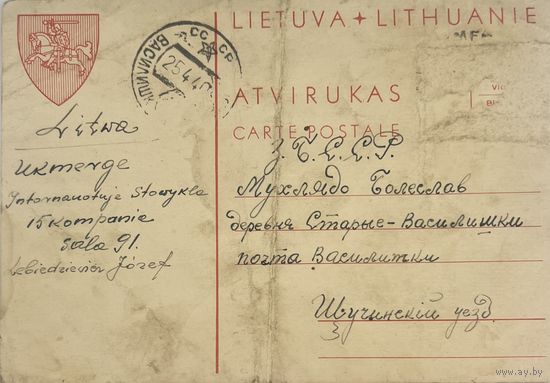 LIETUVA + LITHUANIE
СССР
ВАСИЛИШКИ
25 4 4
ATVIRUKAS
CARTE POSTALE
Litwa
Ukmerge
Internautuje Stowykla
15 Kompanie
Sala 91.
Lebiedziewicz Józef
З. Б. С. С. Р.
Мухлядо Болеслав
деревня Старые-Василишки
почта Василишки
Щучинскій уезд.
www.ay.by